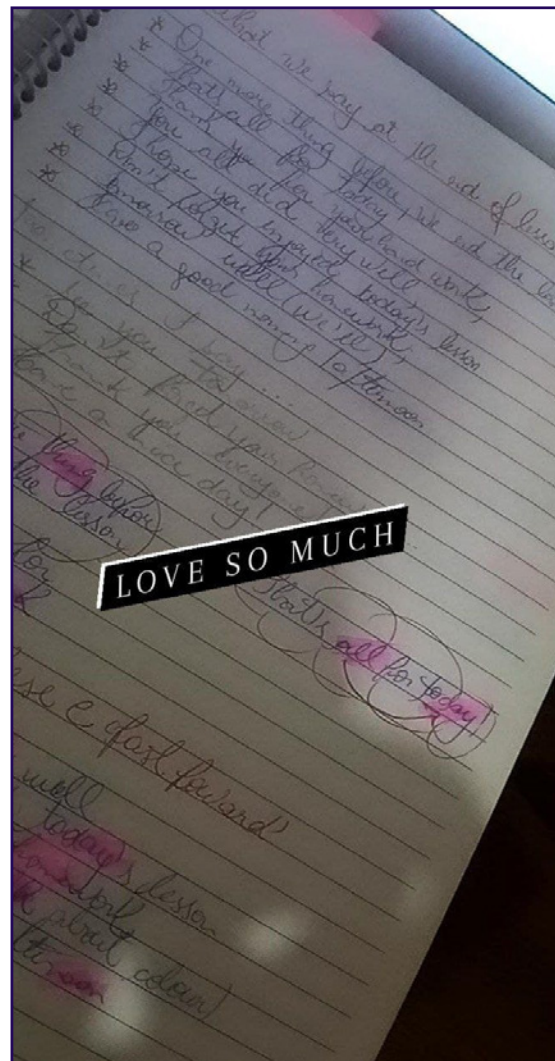 what we say at the end of lesson
* One more thing before, we end the le
* that's all for today
* thank you for your hard work,
* you all did very well,
* I hope you enjoyed today's lesson
* Don't forget your homework;
tomorrow we'll (we'll),
Have a good morning / afternoon
times I say...
* See you tomorrow
Don't your
thank you everyone
have a nice day!
thing befor
the lesson
for
LOVE SO MUCH
that's all for today!
ese e fast foward
well
today's lesson
about colour)
noon